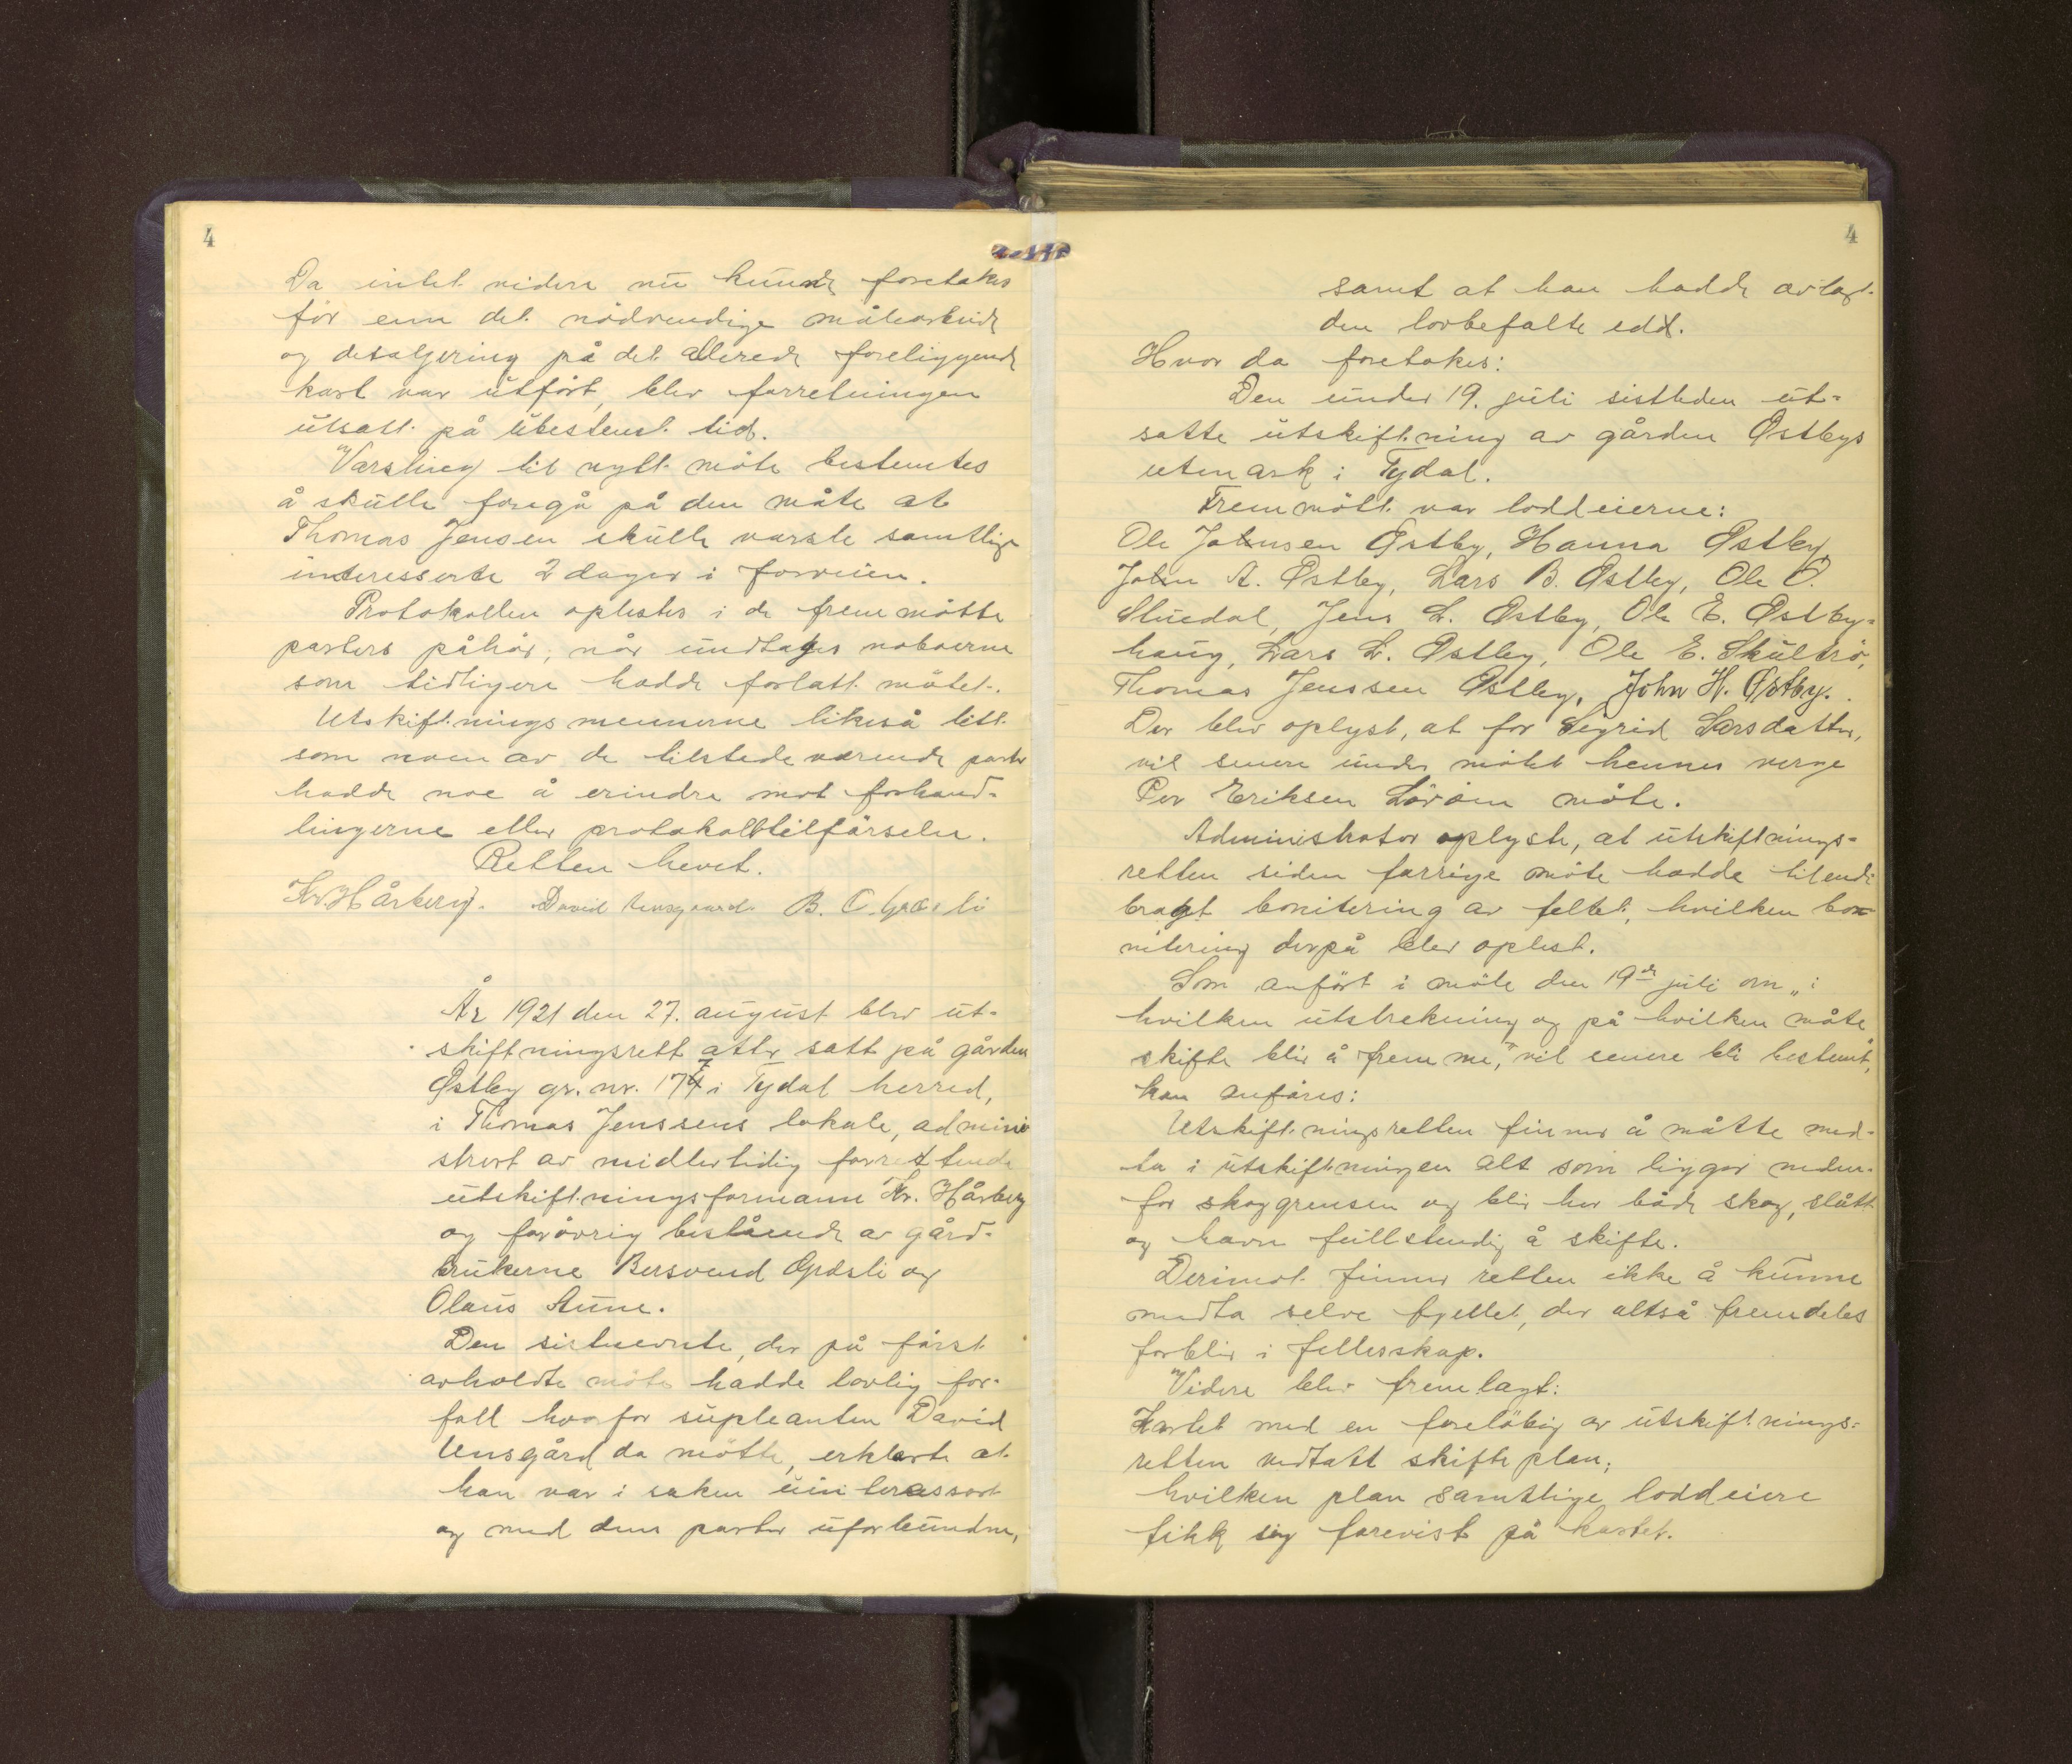 4
Da intet videre nu kunde foretakes
før enn det nödvendige målearbeide
og detaljering på det allerede foreliggende
kart var utfört, blev forretningen
utsatt på ubestemt tid.
Varsling til nytt möte bestemtes
å skulle foregå på den måte at
Thomas Jensen skulle varsle samtlige
interesserte 2 dager i forveien.
Protokollen oplestes i de fremmötte
parters påhör, når undtages naboerne
som tidligere hadde forlatt mötet.
Utskiftningsmennerne likeså litt
som noen av de tilstedeværende parter
hadde noe å erindre mot forhand-
lingerne eller protokolltilförselen.
Retten hevet.
Kr. Hårberg. David Unsgaard B. O. Græsli
År 1921 den 27. august blev ut-
skiftningsrett atter satt på gården
Østby gr. nr. 177 i Tydal herred,
i Thomas Jenssens lokale, admini
strert av midlertidig forrettende
utskiftningsformann Kr. Hårberg
og forövrig bestående av gård-
brukerne Bersvend Græsli og
Olaus Aune.
Den sistnevnte, der på först
avholdte möte hadde lovlig for-
fall hvorfor supleanten David
Unsgård da mötte, erklærte at
han var i saken uinteressert
og med dens parter uforbunden,
4
samt at han hadde avlagt
den lovbefalte edd.
Hvor da foretokes:
Den under 19. juli sistleden ut-
satte utskiftning av gården Østbys
utmark i Tydal.
Fremmött var loddeierne:
Ole Johnsen Østby, Hanna Østby,
John A. Østby, Lars B. Østby, Ole O.
Stuedal, Jens L. Østby, Ole E. Østby-
haug, Lars L. Østby, Ole E. Skultrö,
Thomas Jenssen Østby, John H. Østby.
Der blev oplyst, at for Sigrid Larsdatter,
vil senere under mötet hennes verge
Per Eriksen Lövöen möte.
Administrator oplyste, at utskiftnings-
retten siden forrige möte hadde tilende
bragt bonitering av feltet, hvilken bo-
nitering derpå blev oplest.
Som anfört i möte den 19de juli om „i
hvilken utstrekning og på hvilken måte
skifte blir å fremme," vil senere bli bestemt,
kan anföres:
Utskiftningsretten finner å måtte med-
ta i utskiftningen alt som ligger neden-
for skoggrensen og blir her både skog, slått
og havn fullstendig å skifte.
Derimot finner retten ikke å kunne
medta selve fjellet, der altså fremdeles
forblir i fellesskap.
Videre blev fremlagt:
Kartet med en forelöbig av utskiftnings-
retten vedtatt skifteplan,
hvilken plan samtlige loddeiere
fikk sig forevist på kartet.